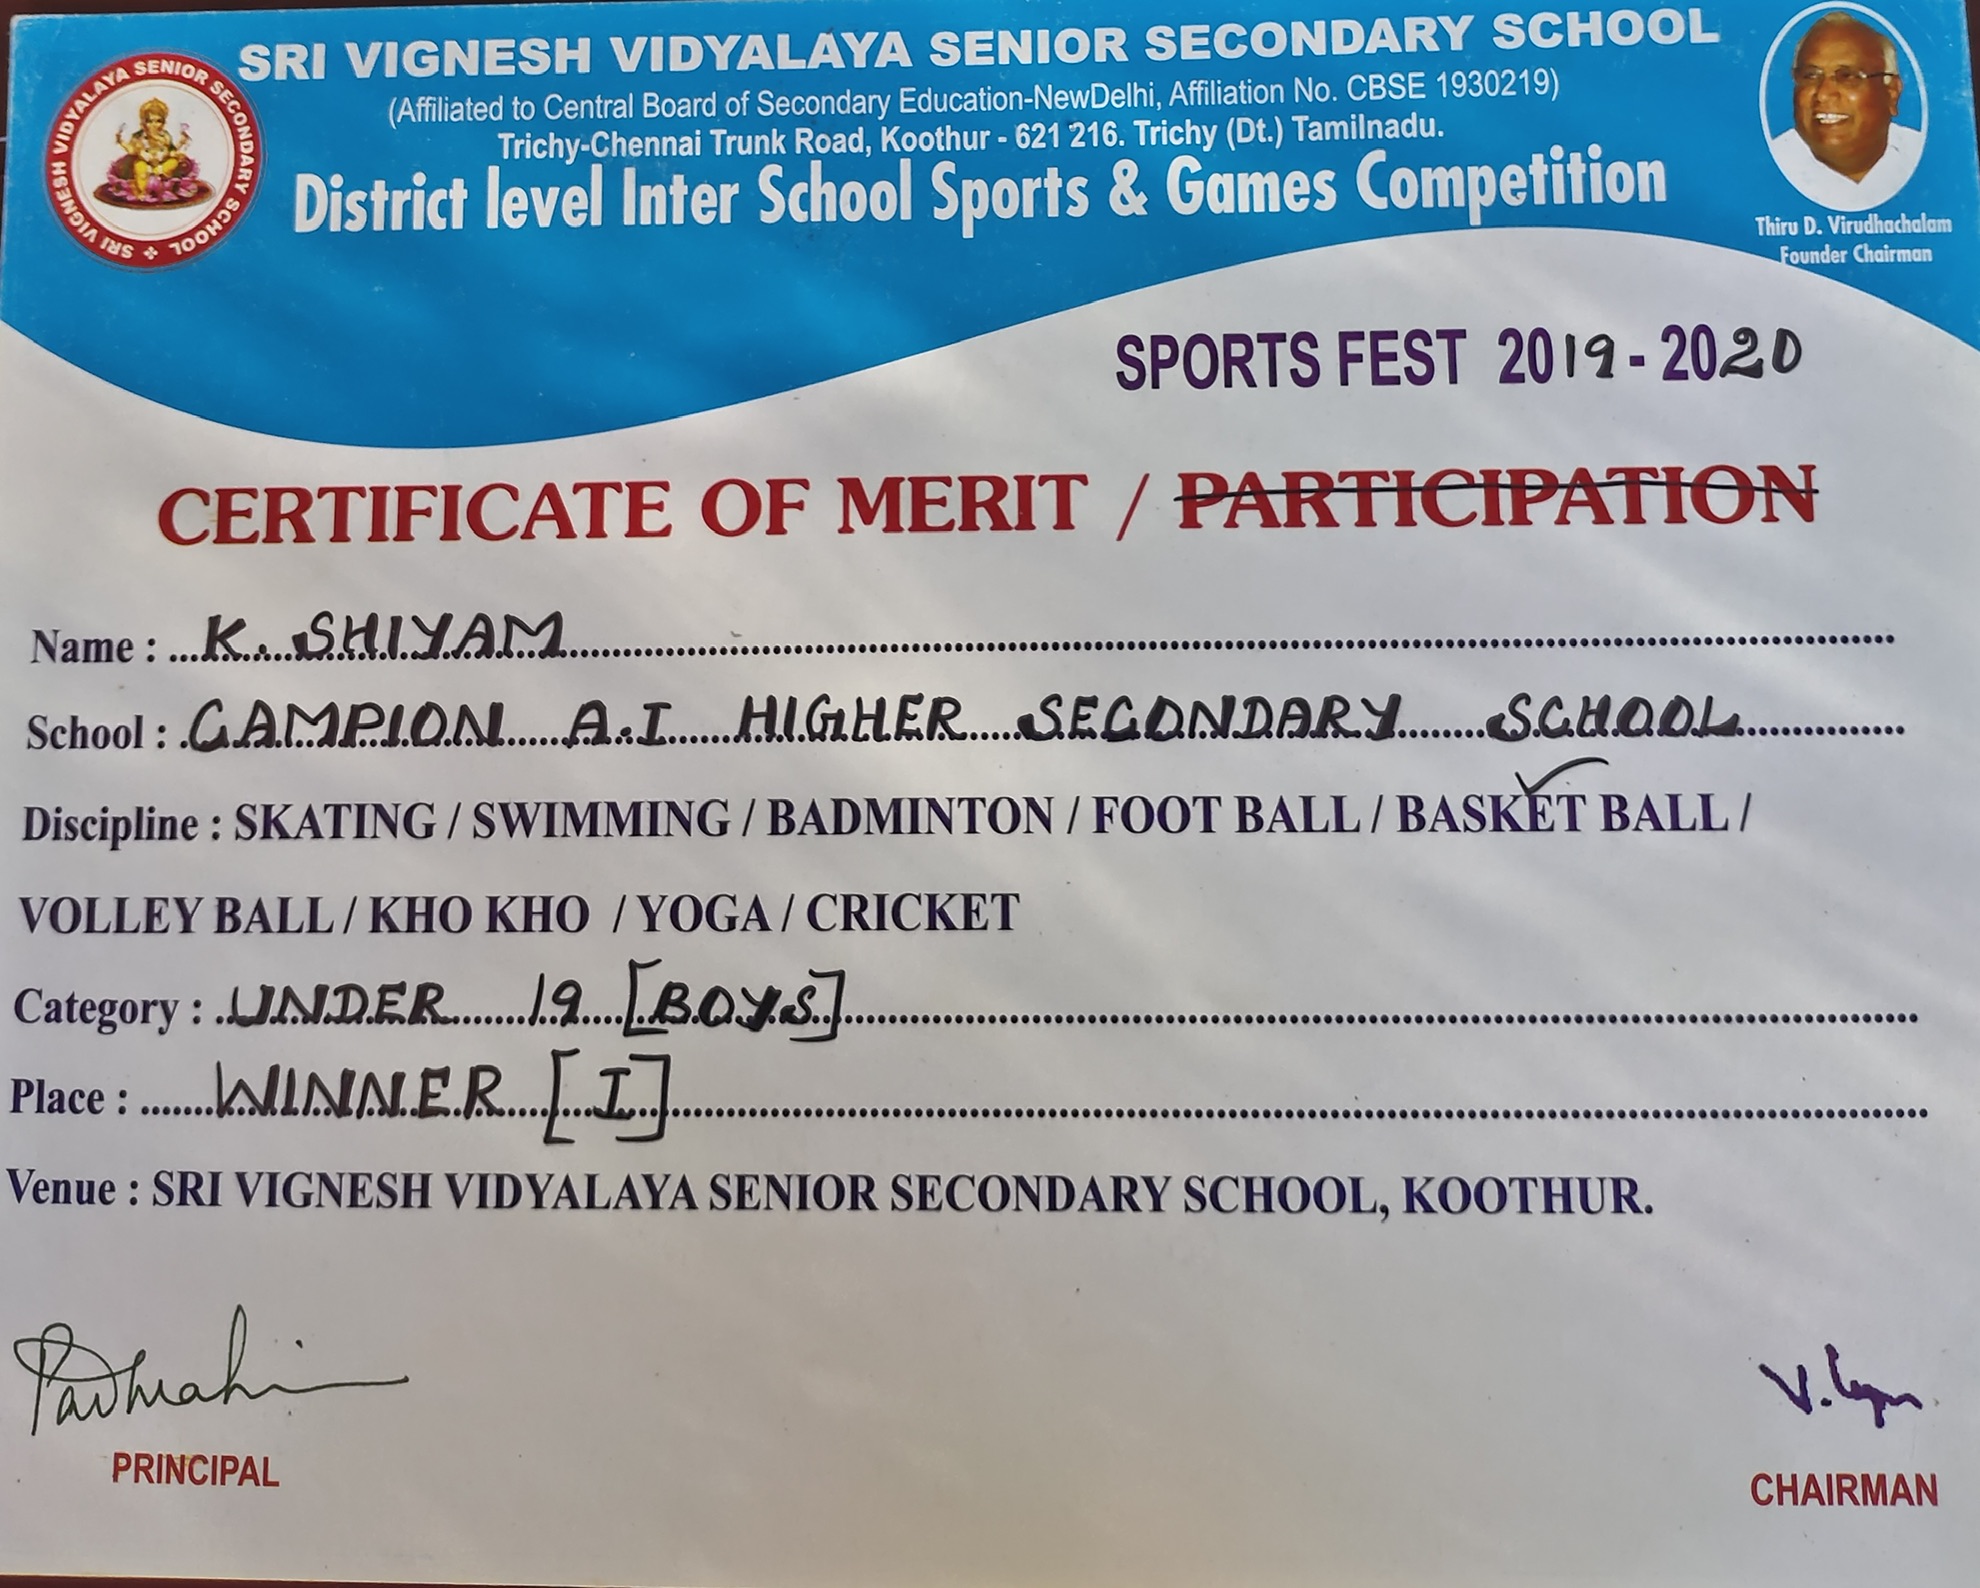 SRI VIGNESH VIDYALAYA SENIOR SECONDARY SCHOOL
(Affiliated to Central Board of Secondary Education-NewDelhi, Affiliation No. CBSE 1930219)
Trichy-Chennai Trunk Road, Koothur - 621 216. Trichy (Dt.) Tamilnadu.
District level Inter School Sports & Games Competition
SRI VIGNESH VIDYALAYA SENIOR SECONDARY SCHOOL
Thiru D. Virudhachalam
Founder Chairman
SPORTS FEST 2019 - 2020
CERTIFICATE OF MERIT / PARTICIPATION
Name : K. SHIYAM
School : CAMPION A.I HIGHER SECONDARY SCHOOL
Discipline : SKATING / SWIMMING / BADMINTON / FOOT BALL / BASKET BALL /
VOLLEY BALL / KHO KHO / YOGA / CRICKET
Category : UNDER 19 [BOYS]
Place : WINNER [I]
Venue : SRI VIGNESH VIDYALAYA SENIOR SECONDARY SCHOOL, KOOTHUR.
PRINCIPAL
CHAIRMAN